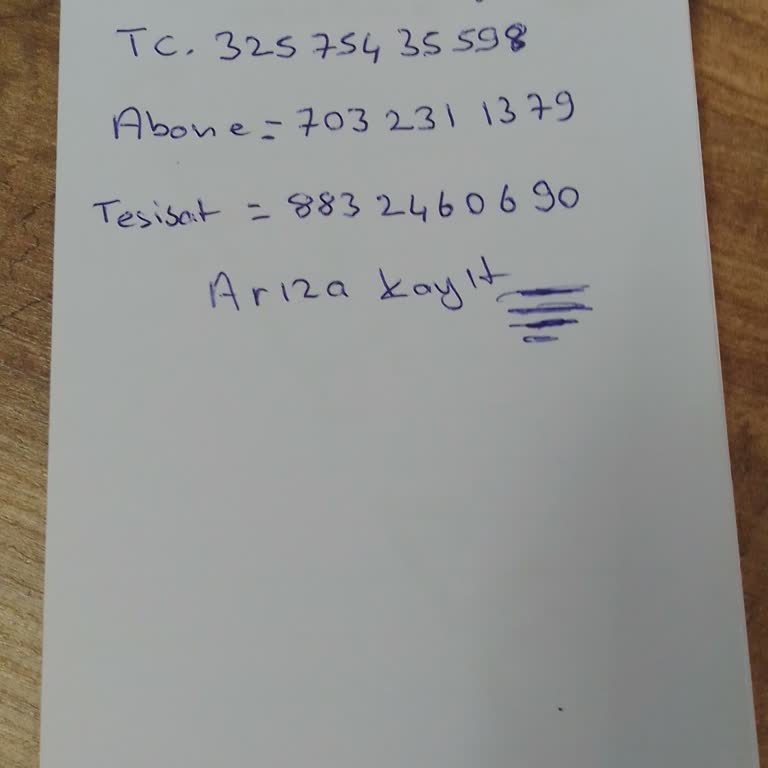 Tc. 325 754 35 598
Abone = 703 231 1379
Tesisat = 883 2460690
Arıza kayıt